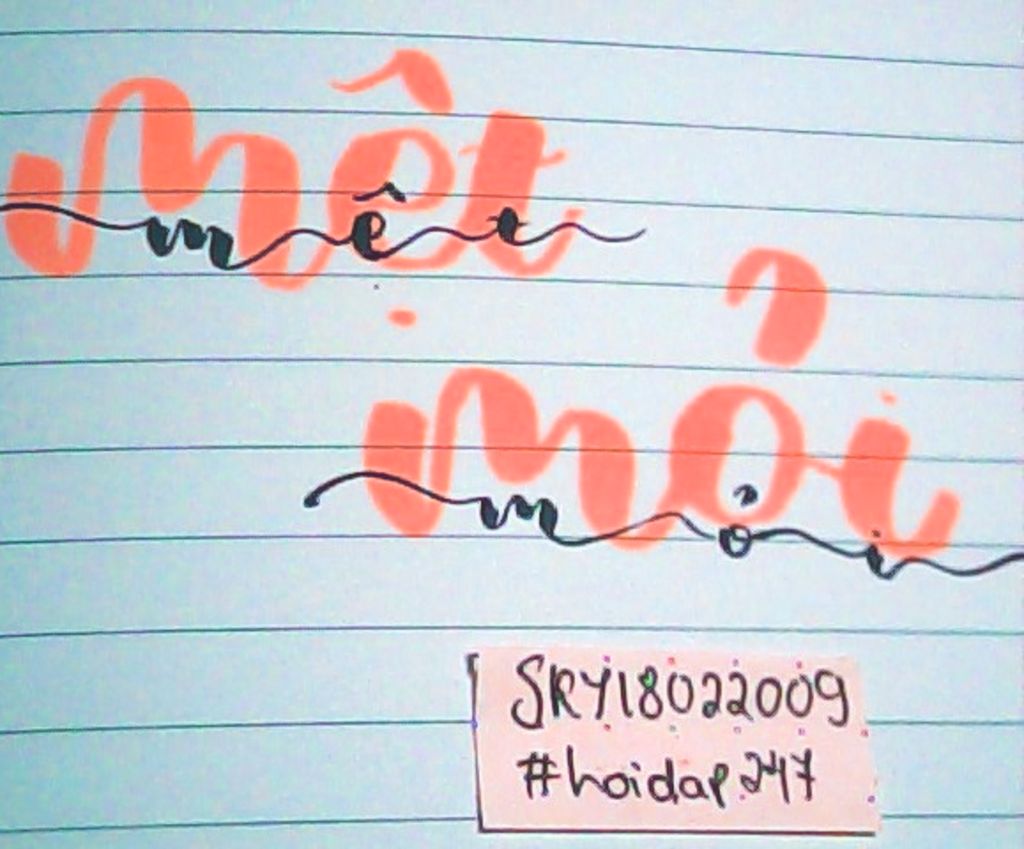 mệt
mệt
mỏi
mỏi
SRY18022009
#hoidap247